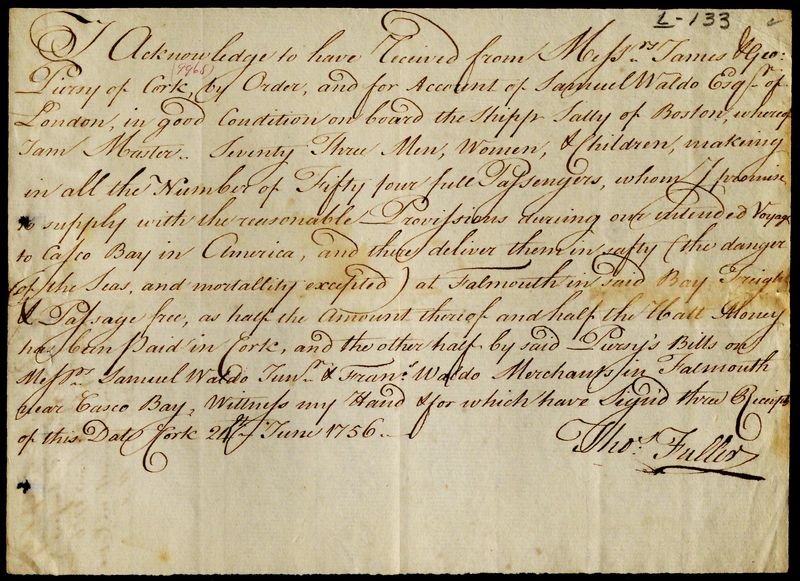 L-133
I Acknowledge to have Received from Messrs. James & Geo:
9965
Piersy of Cork, by Order, and for Account of Samuel Waldo Esqr. of
London, in good Condition on board the Shipp Sally of Boston, whereof
I am Master. Seventy Three Men, Women, & Children, making
in all the Number of Fifty four full Passengers, whom I promise
to supply with the reasonable Provissions during our intended Voyage
to Casco Bay in America, and there deliver them in safty (the danger
of the Seas, and mortallity excepted) at Falmouth in said Bay Freight
& Passage free, as half the Amount thereof and half the Hatt Money
has been paid in Cork, and the other half by said Piersy's Bills on
Messrs. Samuel Waldo Junr. & Frans. Waldo Merchants in Falmouth
near Casco Bay, Witness my Hand & for which have Signd three Receipts
of this Date Cork 24th June 1756.
Thos. Fuller